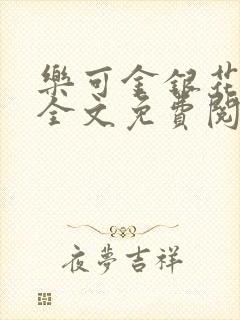 樂可金銀花
全文免費閱
夜夢吉祥